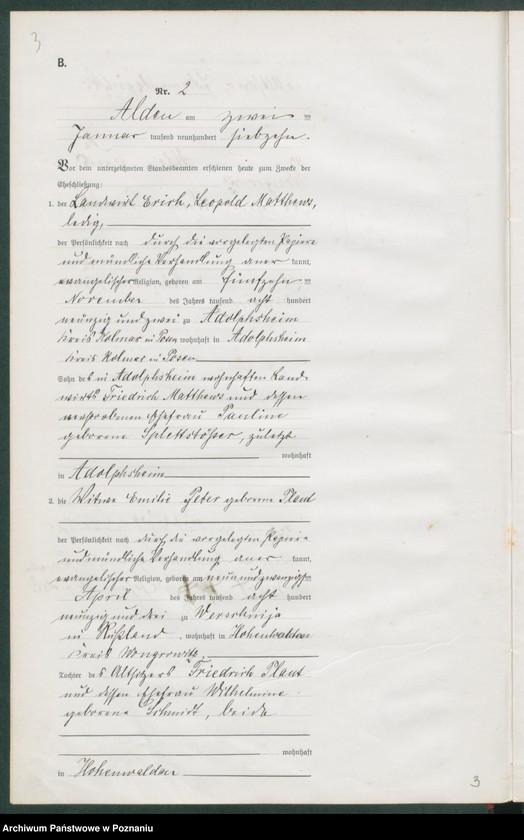 3
B.
Nr. 2
Alden am zwei ten
Januar tausend neunhundert siebzehn.
Vor dem unterzeichneten Standesbeamten erschienen heute zum Zwecke der
Eheschließung:
1. der Landwirt Erich, Leopold Matthews,
ledig,
der Persönlichkeit nach durch die vorgelegten Papiere
und mündliche Verhandlung aner kannt,
evangelischer Religion, geboren am fünfzehn ten
November des Jahres tausend acht hundert
neunzig und zwei zu Adolphsheim
Kreis Kolmar in Posen wohnhaft in Adolphsheim
Kreis Kolmar in Posen
Sohn des in Adolphsheim wohnhaften Land-
wirts Friedrich Matthews und dessen
verstorbenen Ehefrau Pauline
geborene Splettstößer, zuletzt
wohnhaft
in Adolphsheim
2. die Witwe Emilie Peter geborene Plant
der Persönlichkeit nach durch die vorgelegten Papiere
und mündliche Verhandlung aner kannt,
evangelischer Religion, geboren am neunundzwanzigsten
April des Jahres tausend acht hundert
neunzig und drei zu
in Rußland, wohnhaft in Hohenwalden
Kreis Wongrowitz
Tochter des Altsitzers Friedrich Plant
und dessen Ehefrau Wilhelmine
geborene Schmidt, beide
wohnhaft
in Hohenwalden
3
Archiwum Państwowe w Poznaniu